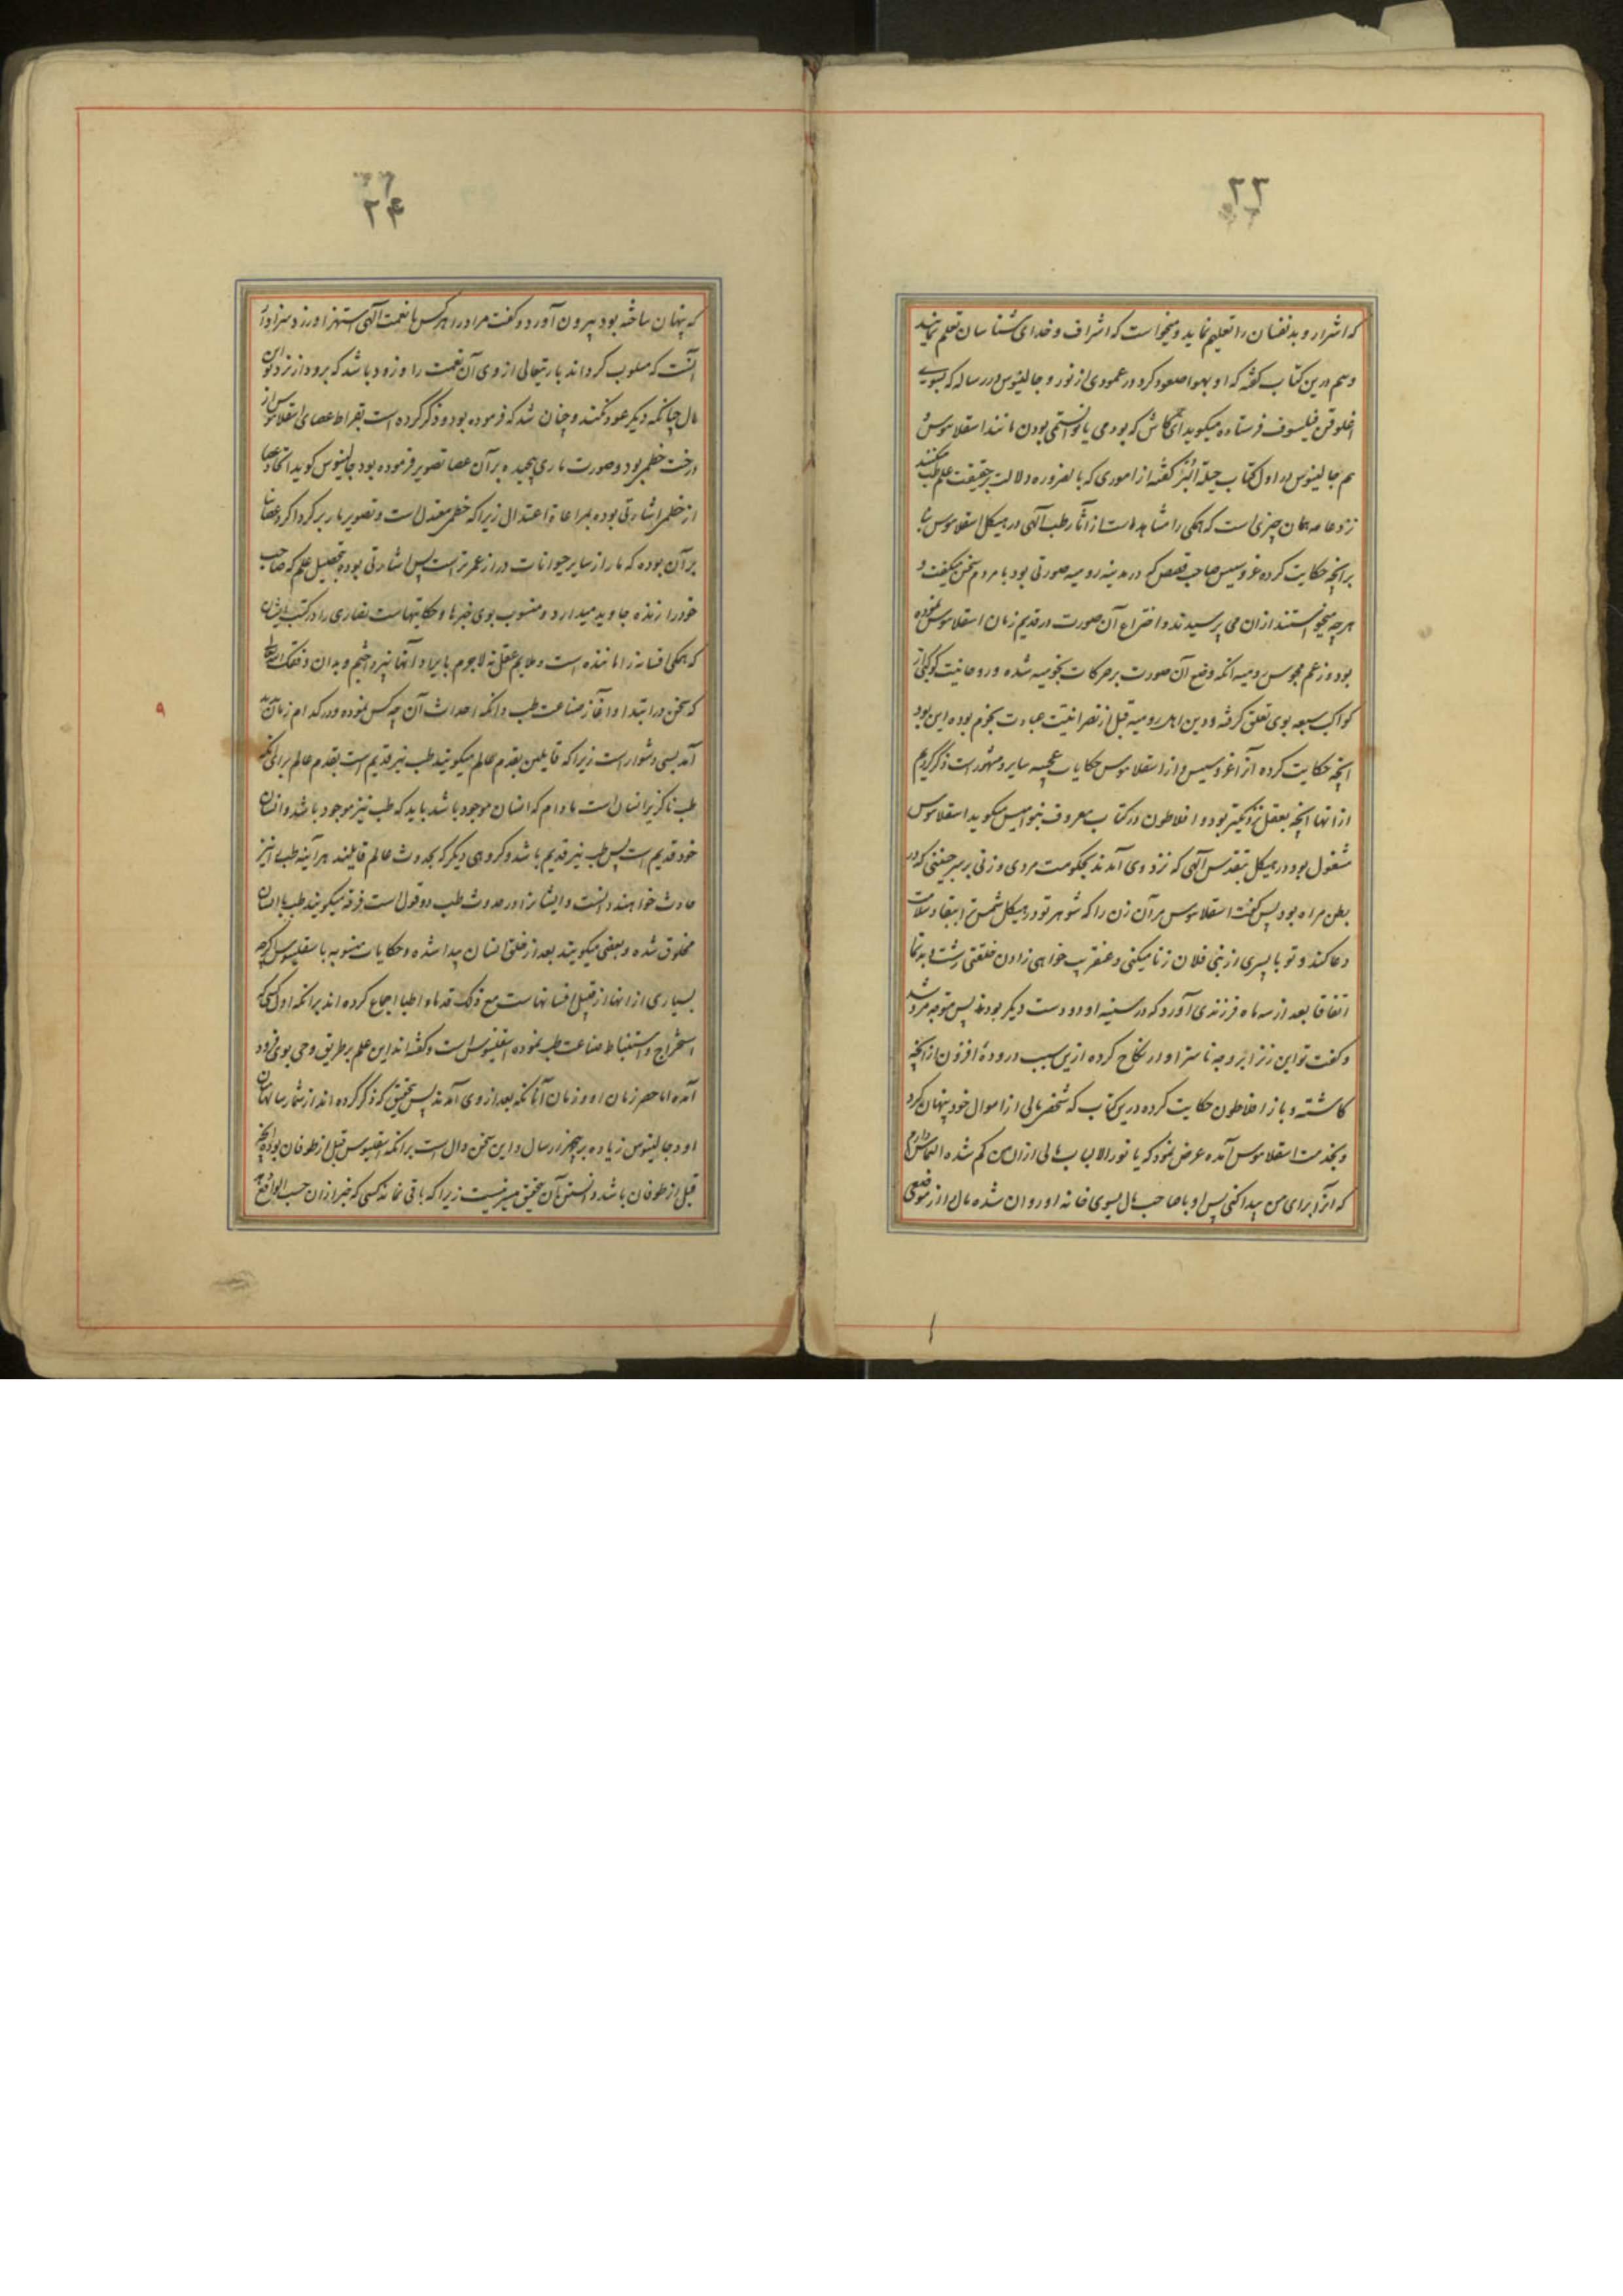 ۲۳
که اشرار و بدنفسان را تعلیم نماید و میخواست که اشراف و خدای شناسان تعلم نمایند
و هم درین کتاب گفته که او بهوا صعود کرد در عمودی از نور و جالینوس در رساله که بسوی
اغلوقن فیلسوف فرستاده میگوید ای کاش که بودمی یا توانستمی بودن مانند اسقلابیوس
هم جالینوس در اول کتاب حیلة البرء گفته از اموری که بالضروره دلالت بر حقیقت علم طب میکند
نزد عامه همان چیزی است که همگی را مشاهد است از آثار طب آلهی در هیکل اسقلابیوس بنا
برانچه حکایت کرده غروسیس صاحب قصص که در مدینه رومیه صورتی بود با مردم سخن میگفت و
هرچه میخواستند از ان می پرسیدند و اختراع آن صورت در قدیم زمان اسقلابیوس نموده
بود و زعم مجوس رومیه انکه وضع آن صورت بر حرکات نجومیه شده و روحانیت کوکبی از
کواکب سبعه بوی تعلق گرفته و دین اهل رومیه قبل از نصرانیت عبادت نجوم بوده این بود
انچه حکایت کرده آنرا غروسیس و از اسقلابیوس حکایات عجیبه سایر و مشهور است ذکر کردیم
از انها انچه بعقل نزدیکتر بود و افلاطون در کتاب معروف بنوامیس میگوید اسقلابیوس
مشغول بود در هیکل بتقدیس آلهی که نزد وی آمدند بحکومت مردی و زنی بر سر جنینی که در
بطن مراه بود پس گفت اسقلابیوس مر آن زن را که شوهر تو در هیکل شمس ترا ببقا و سلامت
دعا کند و تو با پسری از بنی فلان زنا میکنی و عنقریب خواهی زادن خلقتی زشت و بدنما
اتفاقا بعد از سه ماه فرزندی آورد که در سینه او دو دست دیگر بودند پس متوجه مرد شد
و گفت تو این زن را بر وجه ناسزاوار نکاح کرده ازین سبب درودهٔ افزون از انچه
کاشته و باز افلاطون حکایت کرده درین کتاب که شخصی مالی از اموال خود پنهان کرد
و بخدمت اسقلابیوس آمده عرض نمود که یا نور الالباب مالی از ان من گم شده التماس دارم
که آنرا برای من پیدا کنی پس او با صاحب مال بسوی خانه او روان شده مال را از موضعی
۲۴
که پنهان ساخته بود بیرون آورد و گفت مر او را هر کس با نعمت آلهی استهزا ورزد سزاوار
آنست که مسلوب گرداند باریتعالی از وی آن نعمت را و زود باشد که برود از نزد تو این
مال چنانکه دیگر عود نکند و چنان شد که فرموده بود و ذکر کرده است بقراط عصای اسقلابیوس از
درخت خطمی بود و صورت ماری پیچیده بر آن عصا تصویر فرموده بود جالینوس گوید اتخاذ عصا
از خطمی اشارتی بوده بمراعاة اعتدال زیرا که خطمی معتدل است و تصویر مار بر گرداگرد عصا بنا
بر آن بوده که مار از سایر حیوانات دراز عمرتر است پس اشارتی بوده بتحصیل علم که صاحب
خود را زنده جاوید میدارد و منسوب بوی خبرها و حکایتهاست نصاری را در کتب ایشان
که همگی افسانه را مانند است و ملایم عقل نه لاجرم بایراد آنها نپرداختیم و بدان وقعتک الله
که سخن در ابتدا و آغاز صناعت طب و انکه احداث آن چه کس نموده و در کدام زمان
آمد بسی دشوار است زیرا که قایلین بقدم عالم میگویند طب نیز قدیم است بقدم عالم برای انکه
طب ناگزیر انسان است مادام که انسان موجود باشد باید که طب نیز موجود باشد و انسان
خود قدیم است پس طب نیز قدیم باشد و گروهی دیگر که بحدوث عالم قایلند هر آینه طب را نیز
حادث خواهند دانست و ایشانرا در حدوث طب دو قول است فرقه میگویند طب با انسان
مخلوق شده و بعضی میگویند بعد از خلق انسان پیدا شده و حکایات منسوبه باسقلبیوس اگرچه
بسیاری از انها از قبیل افسانهاست مع ذلک قدماء اطبا اجماع کرده اند برانکه اول کسی که
استخراج و استنباط صناعت طب نموده اسقلبیوس است و گفته اند این علم بر طریق وحی بوی فرود
آمده اما حصر زمان او و زمان آنانکه بعد از وی آمدند پس بتحقیق که ذکر کرده اند از شمار سالهای میان
او و جالینوس زیاده بر پنج هزار سال و این سخن دال است برانکه اسقلبیوس قبل از طوفان بوده و انچه
قبل از طوفان باشد دانستن آن بتحقیق میسر نیست زیرا که باقی نماند کسی که خبر از ان حسب الواقع
۹